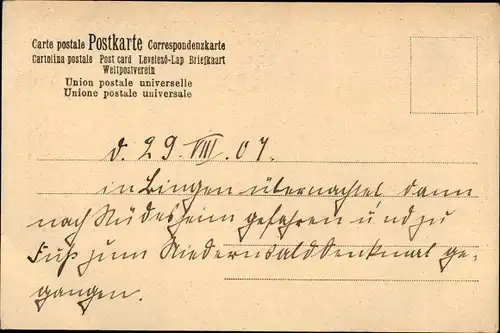 Carte postale Postkarte Correspondenzkarte
Cartolina postale Post card Levelező-Lap Briefkaart
Weltpostverein
Union postale universelle
Unione postale universale
d. 29. VIII. 07.
in Bingen übernachtet dann
nach Rüdesheim gefahren und zu
Fuß zum Niederwalddenkmal ge-
gangen.